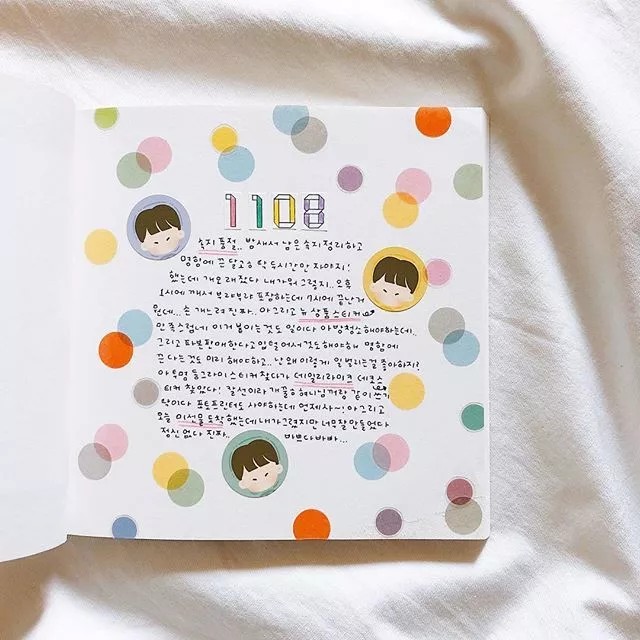 1108
속지 품절.. 밤새서 남은 속지정리하고
명함에 끈 달고송 딱 두시간만 자야지!
했는데 개오래잤다 내가뭐 그렇지.. 으휴
1시에 깨서 부랴부랴 포장하는데 7시에 끝난거
원데... 손 개느려진짜.. 아그리고 뉴 상품스티커
만족스럽네 이거 붙이는것도 일이다 아방청소해야하는데..
그리고 타본판매한다고 입 털어서 것도해야해 명함에
끈다는것도 미리 해야하고.. 난왜이렇게 일벌리는걸 좋아하지?
아 투명 동그라미스티커찾다가 데일리라이크 데코스
티커 찾았다! 칼선이라 개꿀송 혜니님꺼랑 같이쓰기
딱이다 포토프린터도 사야하는데 언제사~! 아그리고
오늘 이선물도착했는데 내가그렸지만 너무잘만들었다
정신없다 진짜.. 바쁘다바빠...